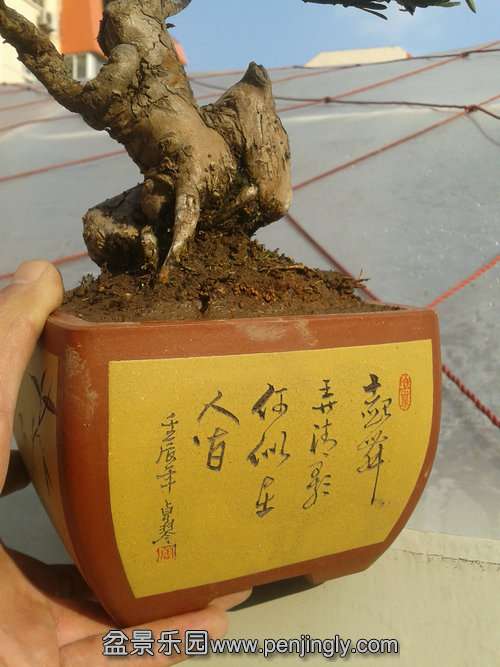 起舞
弄清影
何似在
人间
壬辰年
盆景乐园www.penjingly.com